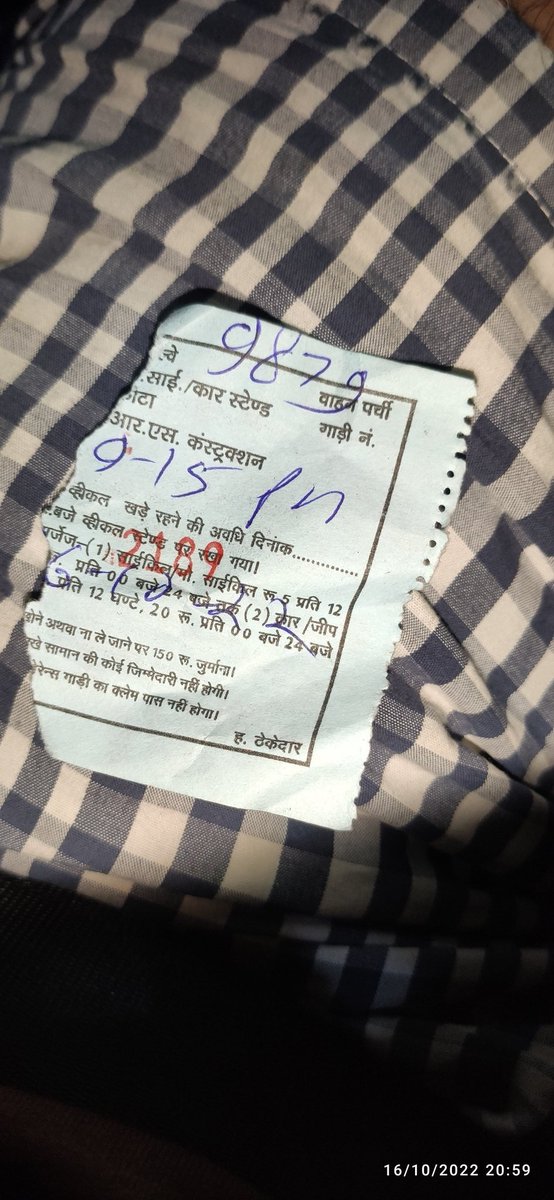 9879
चे वाहन पर्ची
साई./कार स्टेण्ड गाड़ी नं.
आर.एस. कंस्ट्रक्शन
9-15 pm
व्हीकल खड़े रहने की अवधि दिनांक..............
बजे व्हीकल स्टेण्ड पर रखा गया।
2189
(1) साईकिल/मो. साईकिल रू 5 प्रति 12
प्रति 00 बजे 24 बजे तक (2) कार/जीप
प्रति 12 घण्टे, 20 रू. प्रति 00 बजे 24 बजे
होने अथवा ना ले जाने पर 150 रू. जुर्माना।
रखे सामान की कोई जिम्मेदारी नहीं होगी।
गाड़ी का क्लेम पास नहीं होगा।
ह. ठेकेदार
16/10/2022 20:59